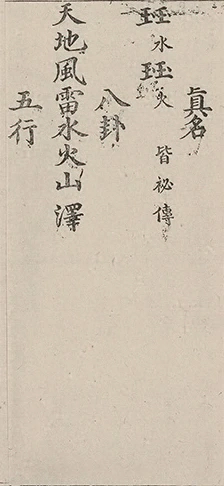 眞名
水火皆祕傳
八卦
天地風雷水火山澤
五行